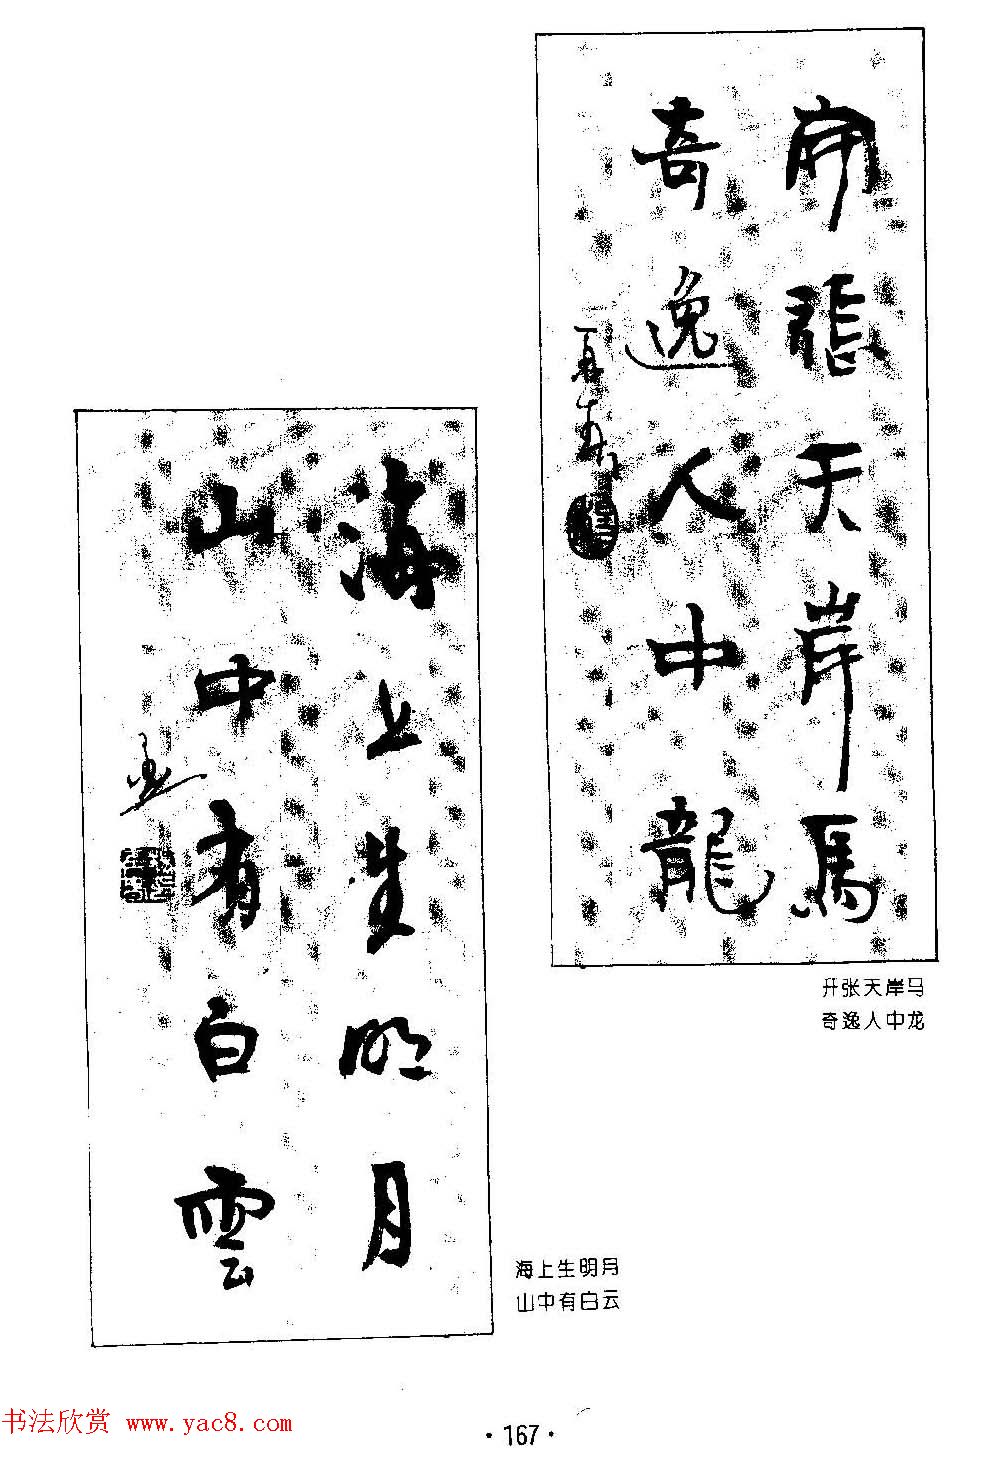 開張天岸馬
奇逸人中龍
开张天岸马
奇逸人中龙
海上生明月
山中有白雲
海上生明月
山中有白云
书法欣赏 www.yac8.com
·167·